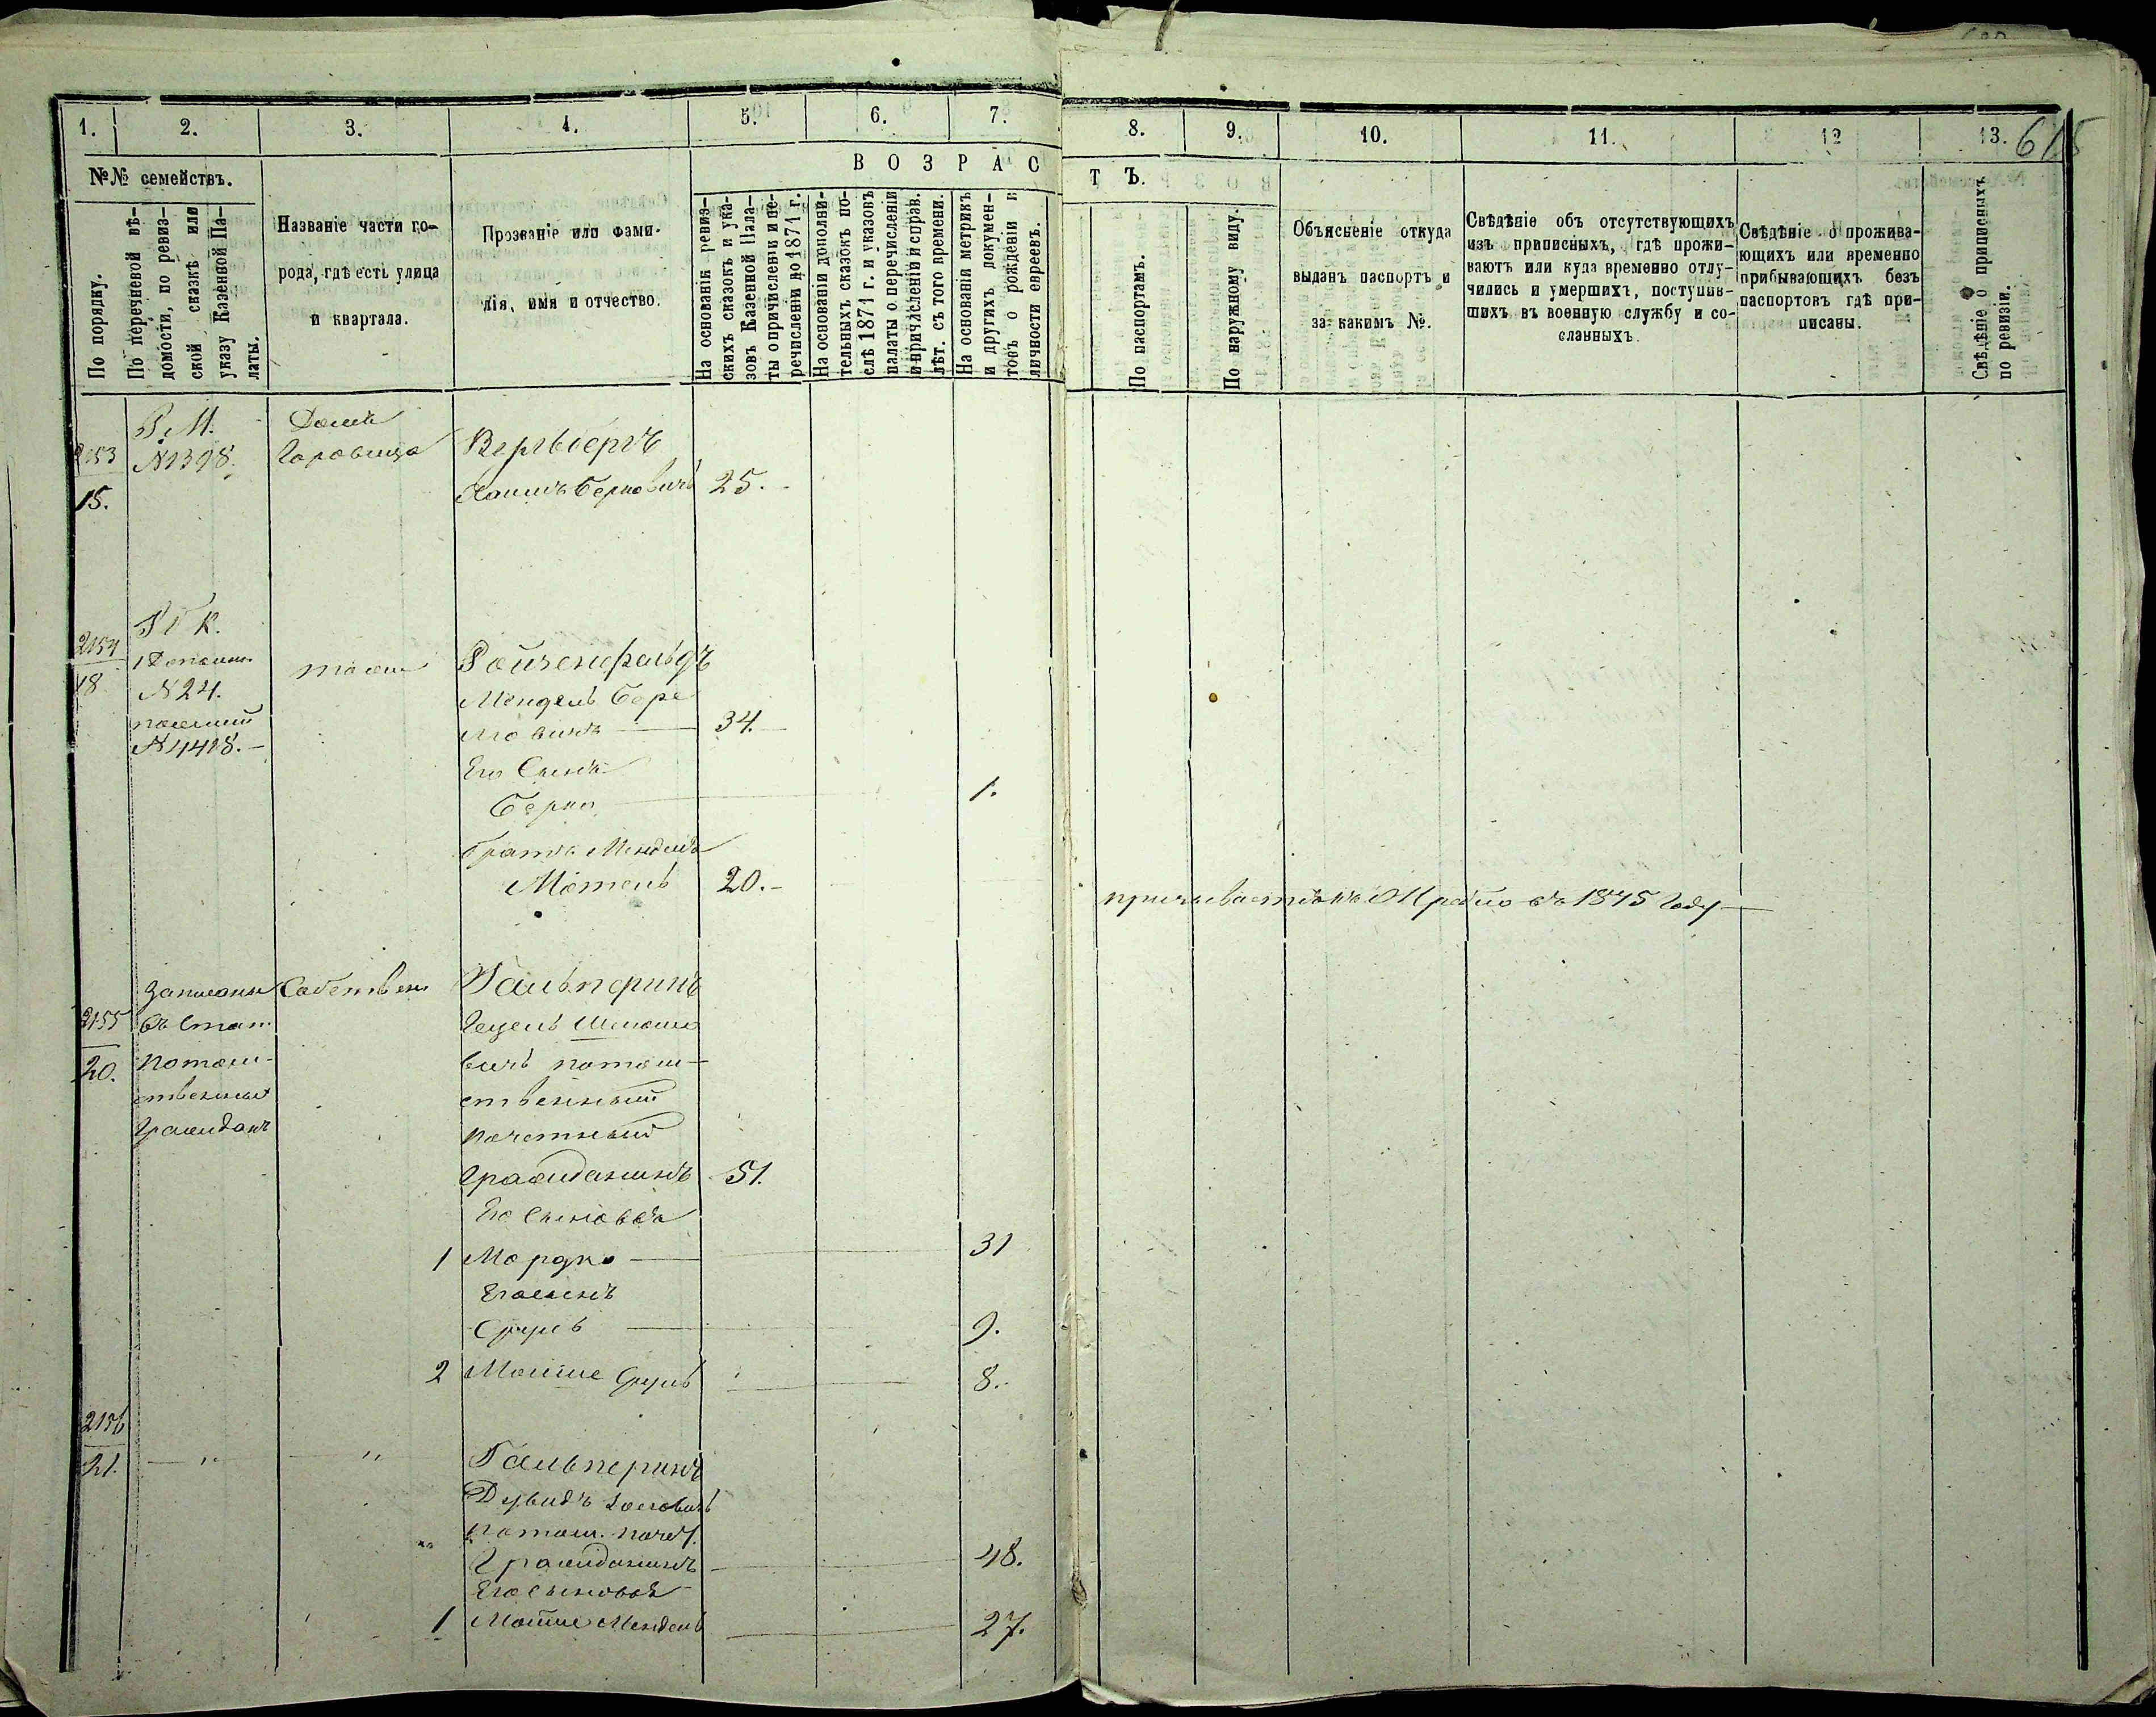 615
1. 2. 3. 4. 5. 6. 7. 8. 9. 10. 11. 12 13.
№№ семействъ.
По порядку.
По перечневой вѣ-
домости, по ревиз-
ской сказкѣ или
указу Казенной Па-
латы.
Названіе части го-
рода, гдѣ есть улица
и квартала.
Прозваніе или фами-
лія, имя и отчество.
ВОЗРАСТЪ.
На основаніи ревиз-
скихъ сказокъ и ука-
зовъ Казенной Пала-
ты о причисленіи и пе-
речисленіи до 1871 г.
На основаніи дополни-
тельныхъ сказокъ по-
слѣ 1871 г. и указовъ
палаты о перечисленіи
и причисленіи и справ.
лѣт. съ того времени.
На основаніи метрикъ
и другихъ докумен-
товъ о рожденіи и
личности евреевъ.
По паспортамъ.
По наружному виду.
Объясненіе откуда
выданъ паспортъ и
за какимъ №.
Свѣдѣніе объ отсутствующихъ
изъ приписныхъ, гдѣ прожи-
ваютъ или куда временно отлу-
чились и умершихъ, поступив-
шихъ въ военную службу и со-
сланныхъ.
Свѣдѣніе о прожива-
ющихъ или временно
прибывающихъ безъ
паспортовъ гдѣ при-
писаны.
Свѣдѣніе о приписныхъ
по ревизіи.
Р. М. Домъ
2153 №1398. Горовица Вергбергъ
15. Хаимъ Берковичъ 25.
2154
18
№24. тоже Ройзенфельдъ
Мендель Берко
вичъ 34.
№4418.
Его Сынъ
Берко 1.
Братъ Менделя
Мотель 20.
въ 1875 году
Записаны Собствен. Гальперинъ
2155 въ Стат.
20. Потом-
ственныхъ
Гражданъ
вичъ потом-
ственный
Почетный
Гражданинъ 51.
Его Сыновья
1 Мордко 31
Его сынъ
Сруль 9.
2 Мойше Сруль 8.
2156
21. " " Гальперинъ
Дувидъ Іосіовичъ
потом. почет.
Гражданинъ 48.
Его Сыновья
1 Мойше Мендель 27.